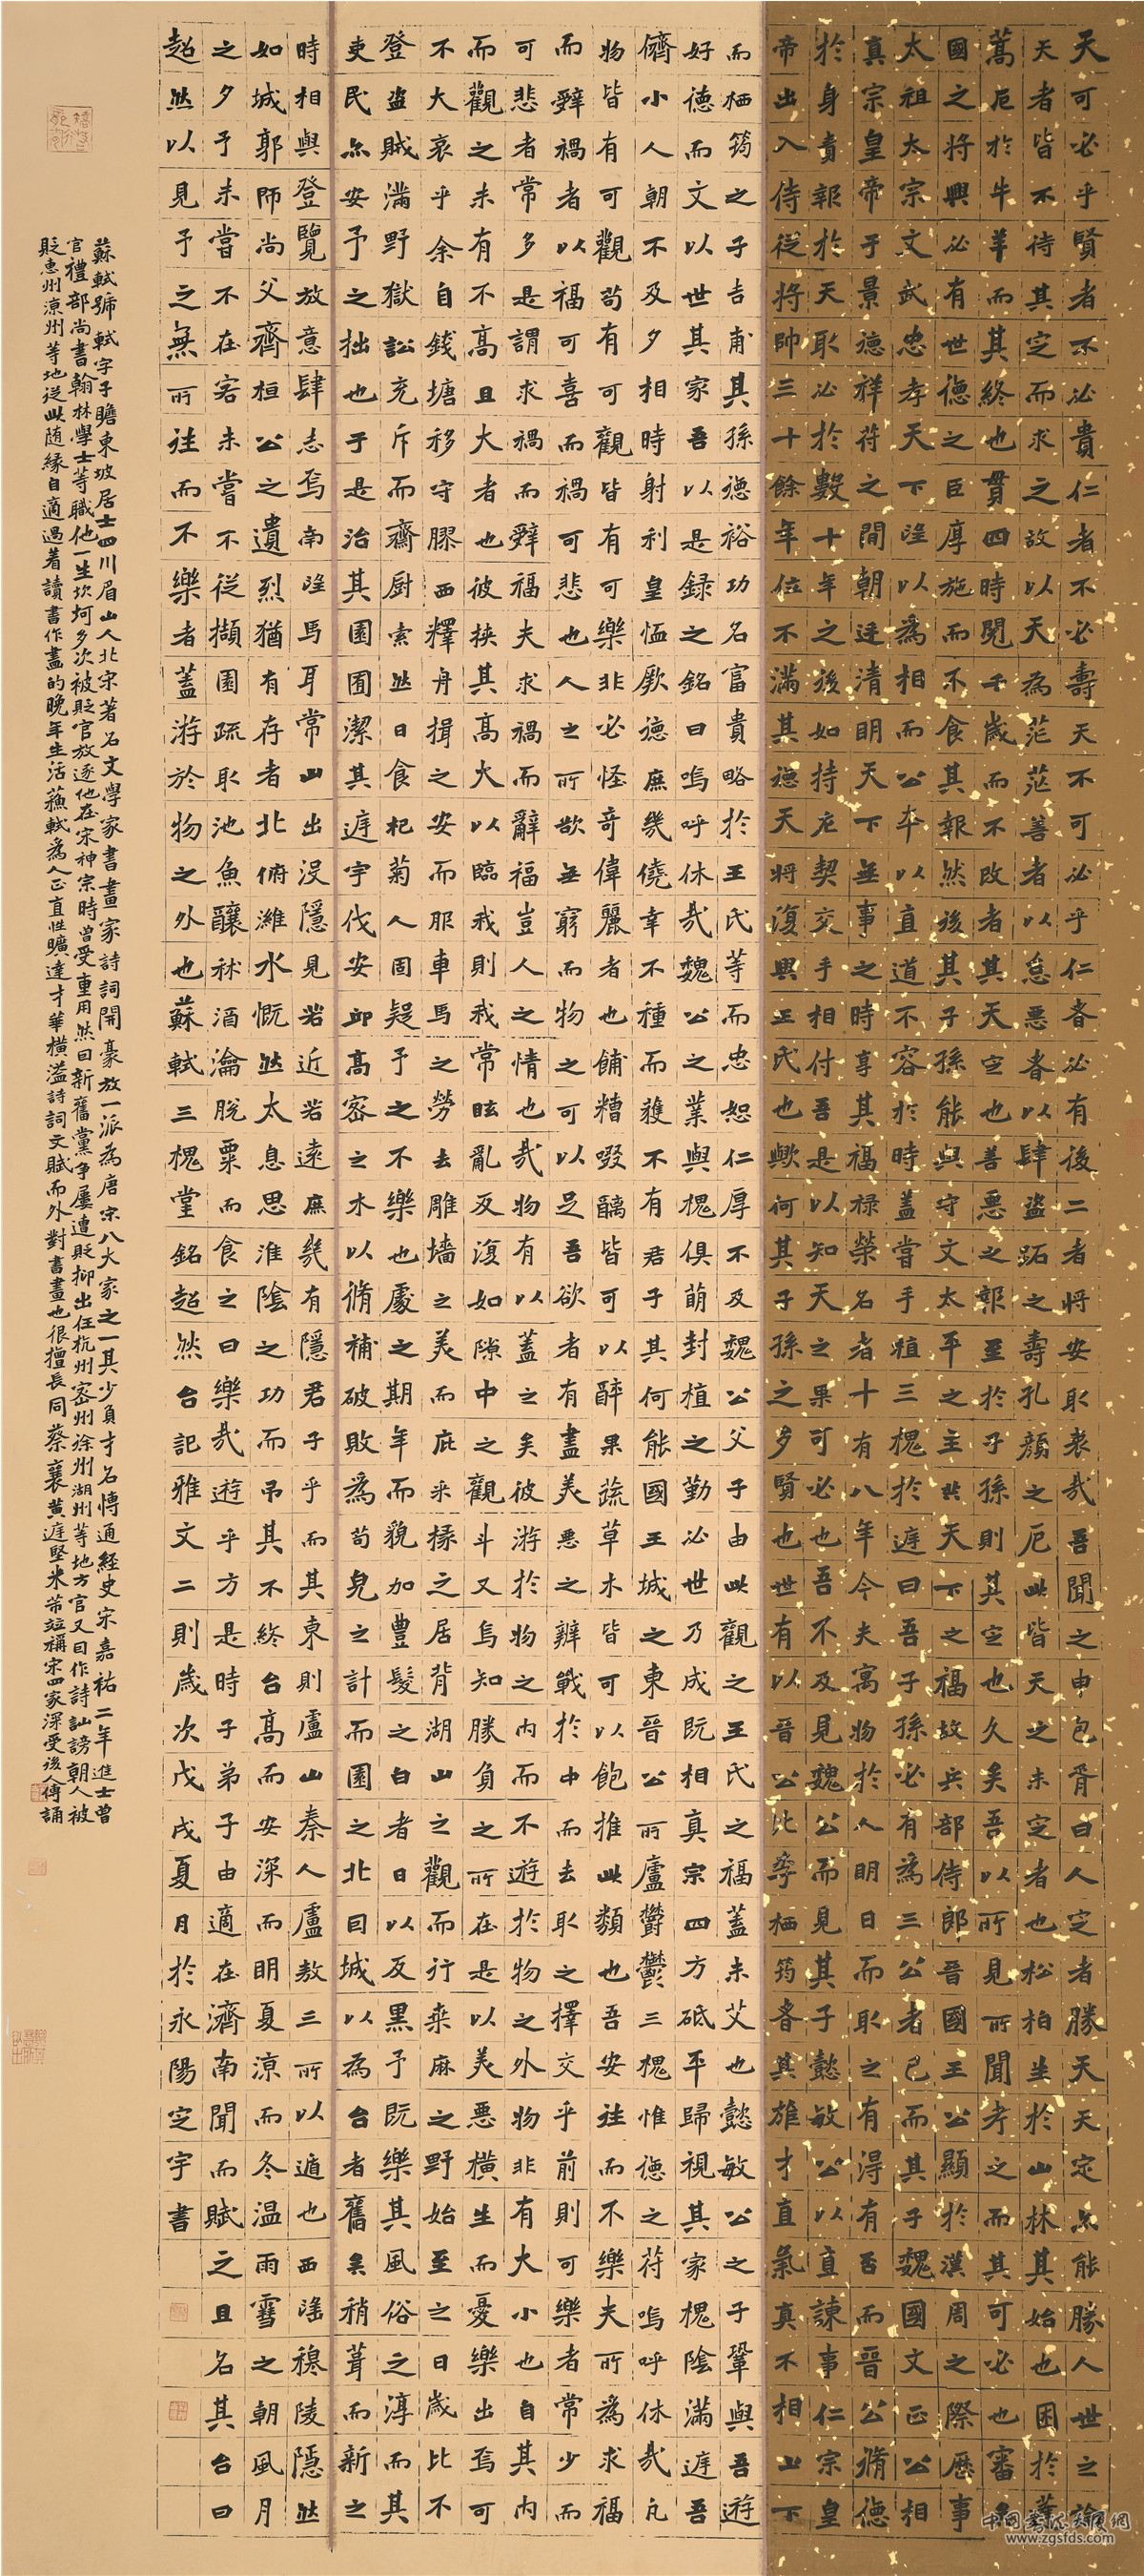 天可必乎賢者不必貴仁者不必壽天不可必乎仁者必有後二者將安取衷哉吾聞之申包胥曰人定者勝天天定亦能勝人世之論
天者皆不待其定而求之故以天為茫茫善者以怠惡者以肆盜跖之壽孔顏之厄此皆天之未定者也松柏生於山林其始也困於蓬
蒿厄於牛羊而其終也貫四時閱千歲而不改者其天定也善惡之報至於子孫則其定也久矣吾以所見所聞考之而其可必也審矣
國之將興必有世德之臣厚施而不食其報然後其子孫能與守文太平之主共天下之福故兵部侍郎晉國王公顯於漢周之際歷事
太祖太宗文武忠孝天下望以為相而公卒以直道不容於時蓋嘗手植三槐於庭曰吾子孫必有為三公者已而其子魏國文正公相
真宗皇帝于景德祥符之間朝廷清明天下無事之時享其福祿榮名者十有八年今夫寓物於人明日而取之有得有否而晉公脩德
於身責報於天取必於數十年之後如持左契交手相付吾是以知天之果可必也吾不及見魏公而見其子懿敏公以直諫事仁宗皇
帝出入侍從將帥三十餘年位不滿其德天將復興王氏也歟何其子孫之多賢也世有以晉公比李栖筠者其雄才直氣真不相上下
而栖筠之子吉甫其孫德裕功名富貴略於王氏等而忠恕仁厚不及魏公父子由此觀之王氏之福蓋未艾也懿敏公之子鞏與吾遊
好德而文以世其家吾以是録之銘曰嗚呼休哉魏公之業與槐俱萌封植之勤必世乃成既相真宗四方砥平歸視其家槐陰滿庭吾
儕小人朝不及夕相時射利皇恤厥德庶幾僥幸不種而獲不有君子其何能國王城之東晉公所廬鬱鬱三槐惟德之符嗚呼休哉凡
物皆有可觀苟有可觀皆有可樂非必怪奇偉麗者也餔糟啜醨皆可以醉果蔬草木皆可以飽推此類也吾安往而不樂夫所為求福
而辭禍者以福可喜而禍可悲也人之所欲無窮而物之可以足吾欲者有盡美惡之辨戰於中而去取之擇交乎前則可樂者常少而
可悲者常多是謂求禍而辭福夫求禍而辭福豈人之情也哉物有以蓋之矣彼游於物之內而不遊於物之外物非有大小也自其內
而觀之未有不高且大者也彼挾其高大以臨我則我常眩亂反復如隙中之觀斗又烏知勝負之所在是以美惡橫生而憂樂出焉可
不大哀乎余自錢塘移守膠西釋舟揖之安而服車馬之勞去雕墻之美而庇采椽之居背湖山之觀而行桑麻之野始至之日歲比不
登盜賊滿野獄訟充斥而齋厨索然日食杞菊人固疑予之不樂也處之期年而貌加豐髮之白者日以反黑予既樂其風俗之淳而其
吏民亦安予之拙也于是治其園囿潔其庭宇伐安邱高密之木以脩補破敗為苟完之計而園之北因城以為台者舊矣稍葺而新之
時相與登覽放意肆志焉南望馬耳常山出沒隱見若近若遠庶幾有隱君子乎而其東則盧山秦人盧敖三所以遁也西望穆陵隱然
如城郭師尚父齊桓公之遺烈猶有存者北俯濰水慨然太息思淮陰之功而吊其不終台高而安深而明夏涼而冬温雨雪之朝風月
之夕予未嘗不在客未嘗不從擷園疏取池魚釀秫酒瀹脫粟而食之曰樂哉遊乎方是時子弟子由適在濟南聞而賦之且名其台曰
超然以見予之無所往而不樂者蓋游於物之外也蘇軾三槐堂銘超然台記雅文二則歲次戊戌夏月於永陽定宇書
蘇軾號軾字子瞻東坡居士四川眉山人北宋著名文學家書畫家詩詞開豪放一派為唐宋八大家之一其少負才名博通經史宋嘉祐二年進士曾
官禮部尚書翰林學士等職他一生坎坷多次被貶官放逐他在宋神宗時曾受重用然因新舊黨爭屢遭貶抑出任杭州密州徐州湖州等地方官又因作詩訕謗朝人被
貶惠州涼州等地從此随緣自適過着讀書作畫的晚年生活蘇軾為人正直性曠達才華橫溢詩詞文賦而外對書畫也很擅長同蔡襄黃庭堅米芾並稱宋四家深受後人傳誦
www.zgsfds.com